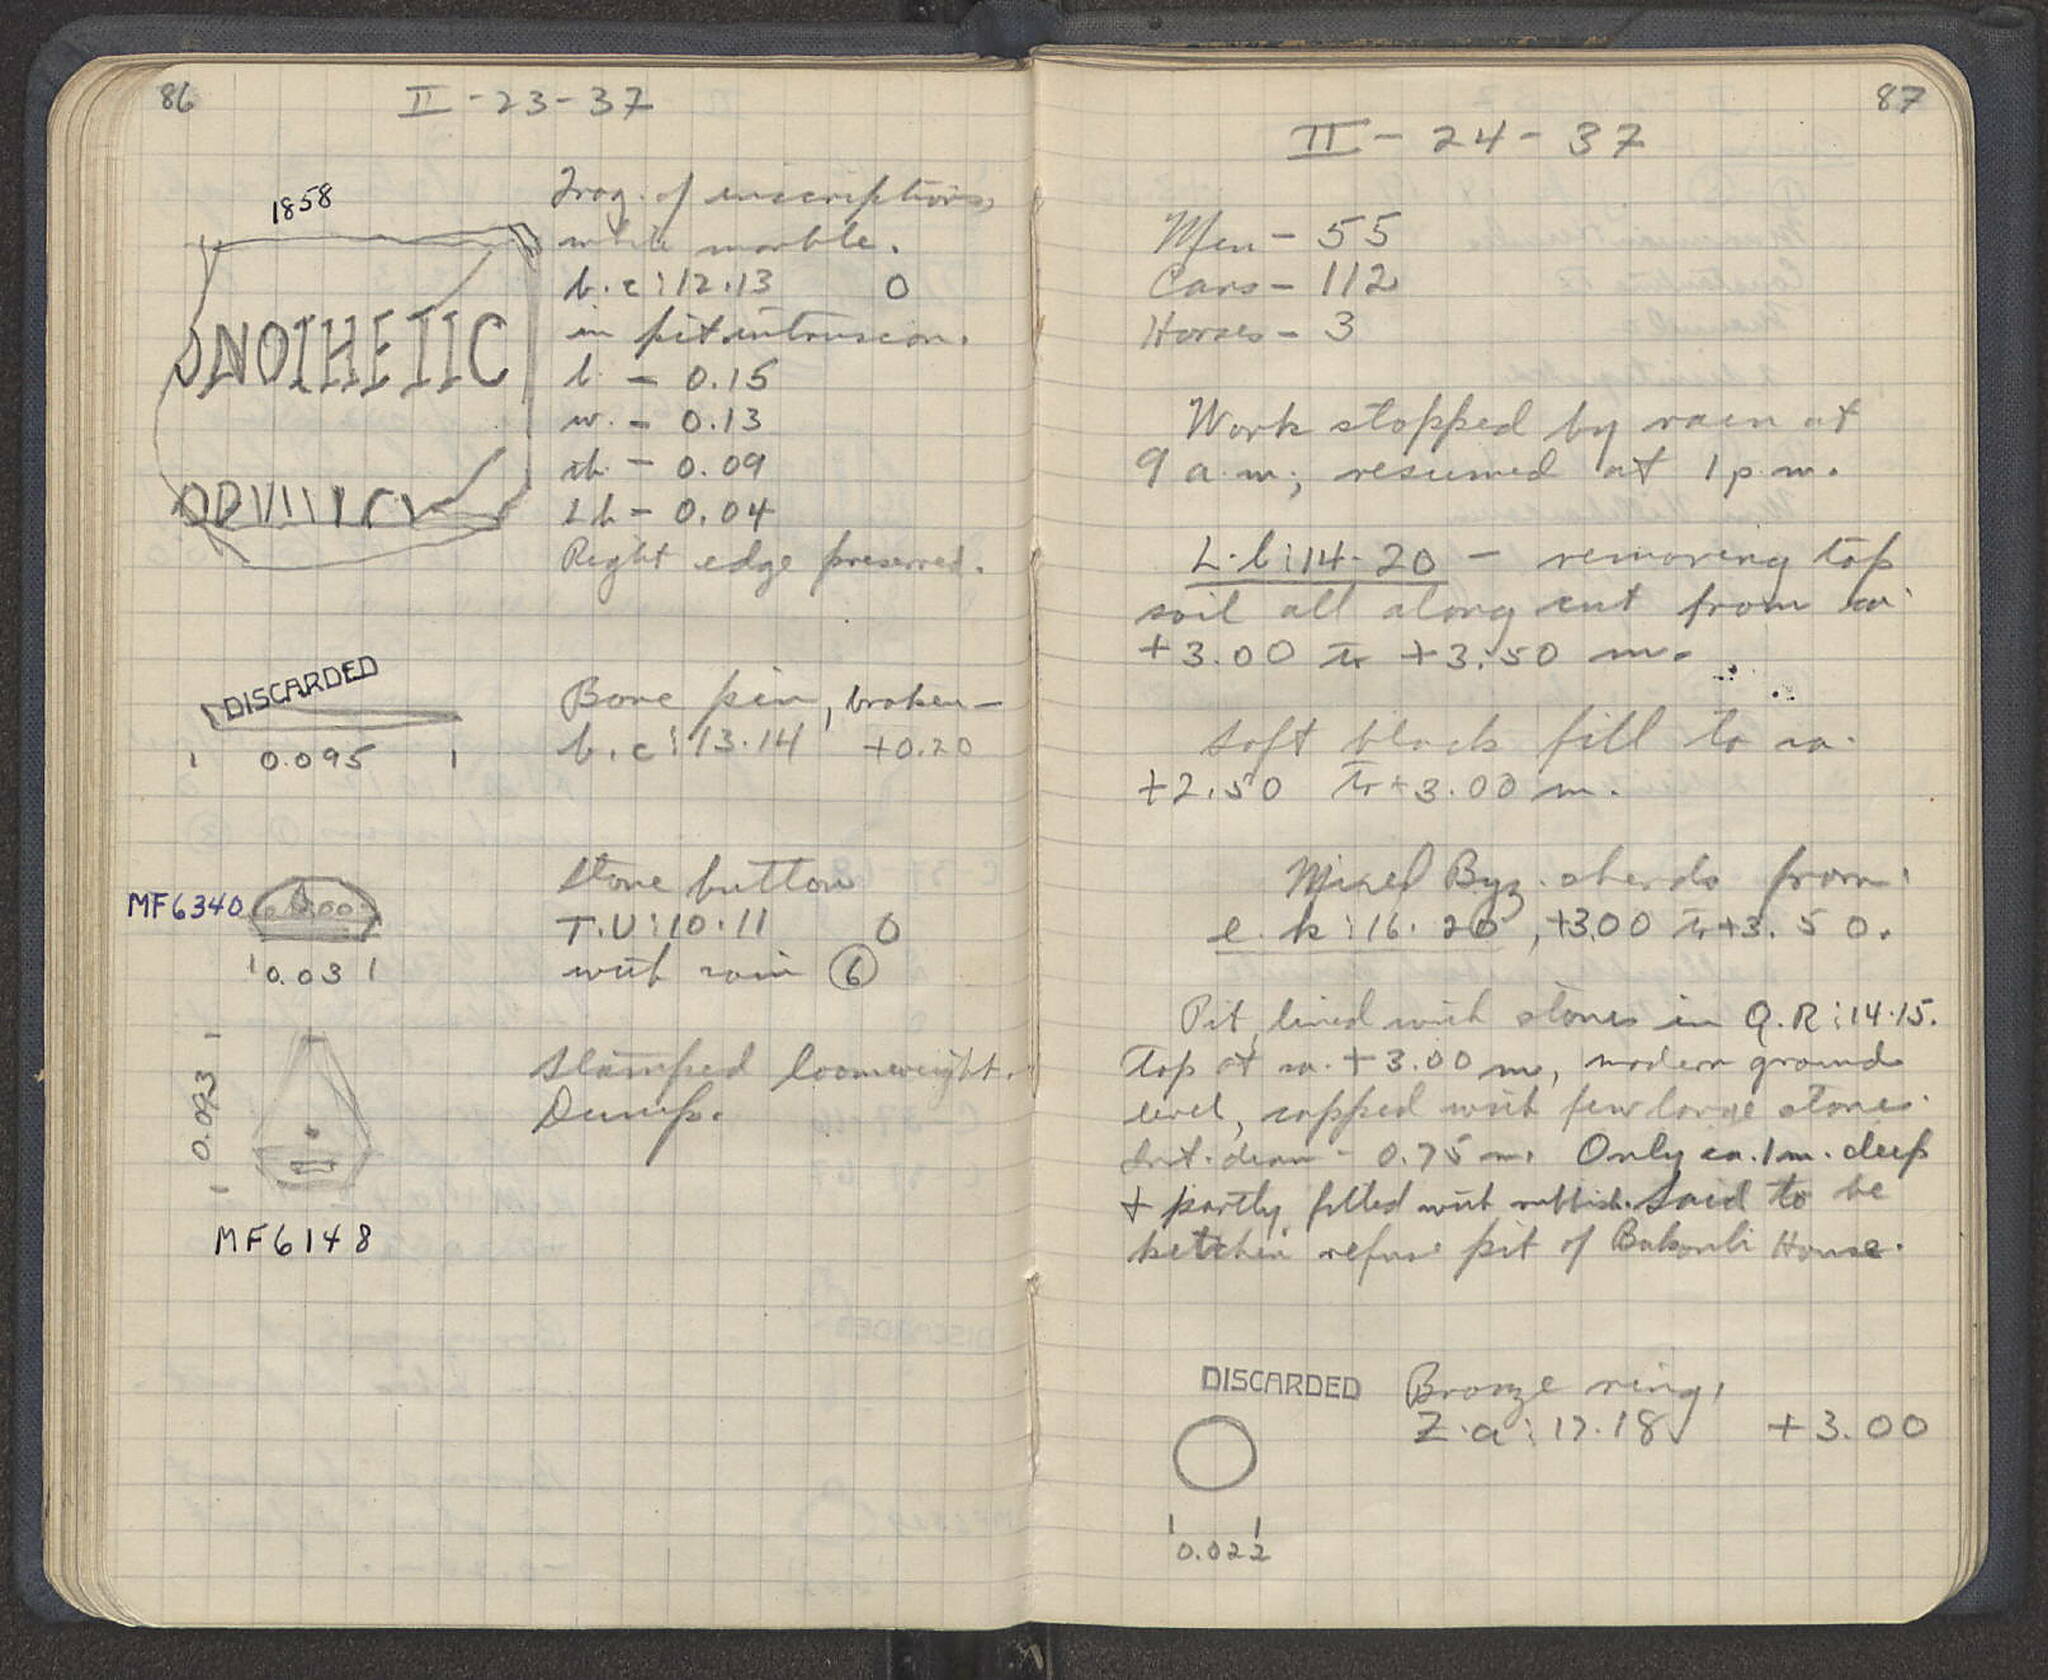 86
II - 23 - 37
1858
Frag. of inscription,
white marble.
b.c:12.13 0
in pit intrusion.
l. - 0.15
w. - 0.13
th. - 0.09
Lh - 0.04
Right edge preserved.
DISCARDED
0.095
Bone pin, broken -
b.c:13.14 +0.20
MF6340
0.03
Stone button
T.U:10.11 0
with coin ⑥
0.093
Stamped loomweight.
Dump.
MF6148
87
II - 24 - 37
Men - 55
Cars - 112
Horses - 3
Work stopped by rain at
9 a.m; resumed at 1 p.m.
L.l:14-20 - removing top
soil all along cut from ca.
+3.00 to +3.50 m.
Soft black fill to ca.
+2.50 to +3.00 m.
Mixed Byz. sherds from:
e.k:16.20, +3.00 to +3.50.
Pit, lined with stones in Q.R:14.15.
Top at ca. +3.00 m, modern ground
level, capped with few large stones.
Int. diam - 0.75 m. Only ca. 1 m. deep
+ partly filled with rubbish. Said to be
kitchen refuse pit of House.
DISCARDED
Bronze ring,
Z.a:17.18 +3.00
0.022